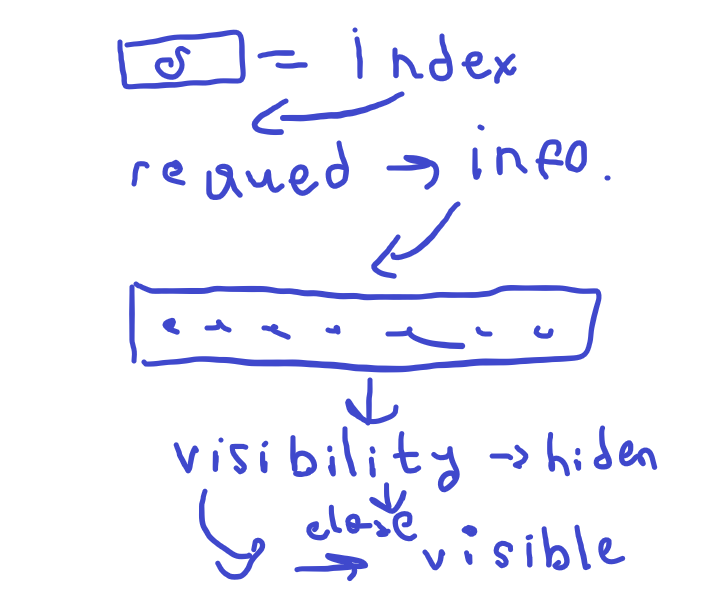 = index
requed → info.
visibility → hiden
close
→ visible